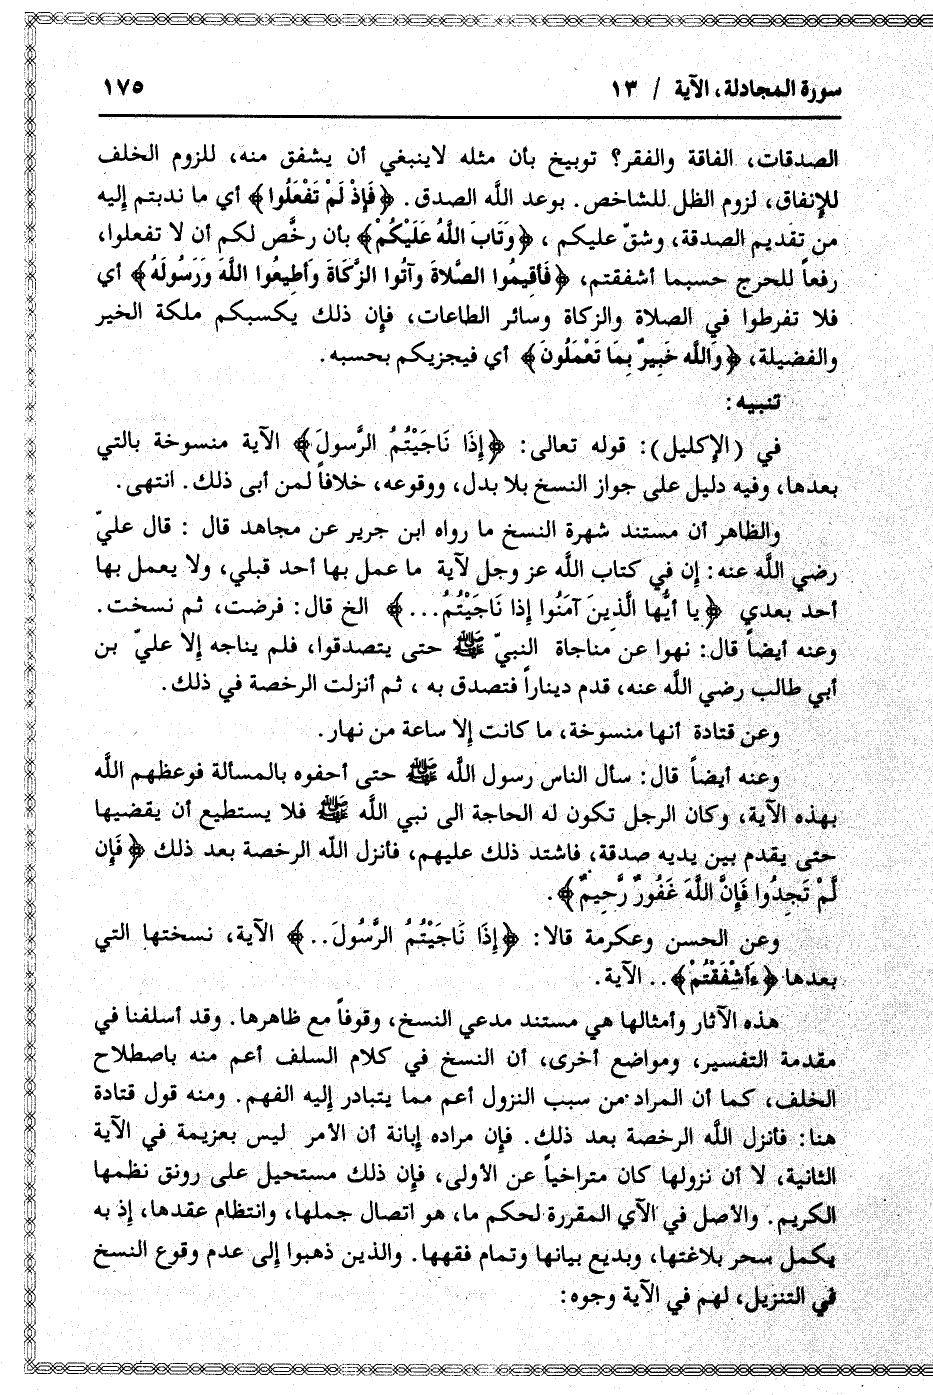 سورة المجادلة، الآية / ١٣
١٧٥
الصدقات، الفاقة والفقر؟ توبيخ بأن مثله لاينبغي أن يشفق منه، للزوم الخلف
للإنفاق، لزوم الظل للشاخص. بوعد اللَّه الصدق. ﴿فَإِذْ لَمْ تَفْعَلُوا﴾ أي ما ندبتم إليه
من تقديم الصدقة، وشقّ عليكم ، ﴿وَتَابَ اللَّهُ عَلَيْكُمْ﴾ بأن رخَّص لكم أن لا تفعلوا،
رفعاً للحرج حسبما أشفقتم، ﴿فَأَقِيمُوا الصَّلاةَ وآتُوا الزَّكَاةَ وأَطِيعُوا اللَّهَ وَرَسُولَهُ﴾ أي
فلا تفرطوا في الصلاة والزكاة وسائر الطاعات، فإن ذلك يكسبكم ملكة الخير
والفضيلة، ﴿وَاللَّه خَبِيرٌ بِمَا تَعْمَلُونَ﴾ أي فيجزيكم بحسبه.
تنبيه:
في (الإكليل): قوله تعالى: ﴿إِذَا نَاجَيْتُمُ الرَّسولَ﴾ الآية منسوخة بالتي
بعدها، وفيه دليل على جواز النسخ بلا بدل، ووقوعه، خلافاً لمن أبى ذلك. انتهى.
والظاهر أن مستند شهرة النسخ ما رواه ابن جرير عن مجاهد قال : قال عليّ
رضي اللَّه عنه: إن في كتاب اللَّه عز وجل لآية ما عمل بها أحد قبلي، ولا يعمل بها
أحد بعدي ﴿يا أيُّها الَّذينَ آمَنُوا إذا نَاجَيْتُمُ...﴾ الخ قال: فرضت، ثم نسخت.
وعنه أيضاً قال: نهوا عن مناجاة النبيّ ﷺ حتى يتصدقوا، فلم يناجه إلا عليّ بن
أبي طالب رضي اللَّه عنه، قدم ديناراً فتصدق به ، ثم أنزلت الرخصة في ذلك.
وعن قتادة أنها منسوخة، ما كانت إلا ساعة من نهار.
وعنه أيضاً قال: سأل الناس رسول اللَّه ﷺ حتى أحفوه بالمسألة فوعظهم اللَّه
بهذه الآية، وكان الرجل تكون له الحاجة الى نبي اللَّه ﷺ فلا يستطيع أن يقضيها
حتى يقدم بين يديه صدقة، فاشتد ذلك عليهم، فأنزل اللَّه الرخصة بعد ذلك ﴿فَإِن
لَّمْ تَجِدُوا فَإِنَّ اللَّهَ غَفُورٌ رَّحِيمٌ﴾.
وعن الحسن وعكرمة قالا: ﴿إِذَا نَاجَيْتُمُ الرَّسُولَ..﴾ الآية، نسختها التي
بعدها ﴿ءَأَشْفَقْتُمْ﴾.. الآية.
هذه الآثار وأمثالها هي مستند مدعي النسخ، وقوفاً مع ظاهرها. وقد أسلفنا في
مقدمة التفسير، ومواضع أخرى، أن النسخ في كلام السلف أعم منه باصطلاح
الخلف، كما أن المراد من سبب النزول أعم مما يتبادر إليه الفهم. ومنه قول قتادة
هنا: فأنزل اللَّه الرخصة بعد ذلك. فإن مراده إبانة أن الأمر ليس بعزيمة في الآية
الثانية، لا أن نزولها كان متراخياً عن الأولى، فإن ذلك مستحيل على رونق نظمها
الكريم. والأصل في الآي المقررة لحكم ما، هو اتصال جملها، وانتظام عقدها، إذ به
يكمل سحر بلاغتها، وبديع بيانها وتمام فقهها. والذين ذهبوا إلى عدم وقوع النسخ
في التنزيل، لهم في الآية وجوه: